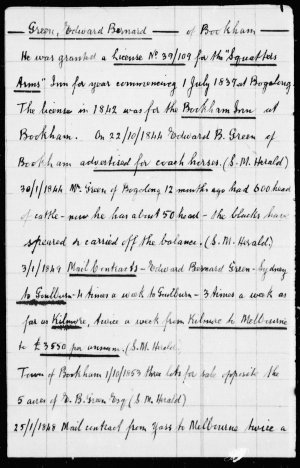 Green, Edward Bernard — of Bookham
He was granted a License Nº 39/109 for the "Squatters
Arms" Inn for year commencing 1 July 1839 at Bogolong
The license in 1842 was for the Bookham Inn at
Bookham. On 22/10/1844 Edward B. Green of
Bookham advertised for coach horses. (S. M. Herald)
30/1/1844 Mr. Green of Bogolong 12 months ago had 600 head
of cattle - now he has about 50 head - the blacks have
speared or carried off the balance. (S. M. Herald.)
3/1/1849 Mail Contracts - Edward Bernard Green - Sydney
to Goulburn - 4 times a week to Goulburn - 3 times a week as
far as Kilmore, twice a week from Kilmore to Melbourne
to £3550 per annum. (S. M. Herald.
Town of Bookham 1/10/1853 three lots for sale opposite the
5 acres of E. B. Green Esq (S. M. Herald)
25/1/1848 Mail contract from Yass to Melbourne twice a